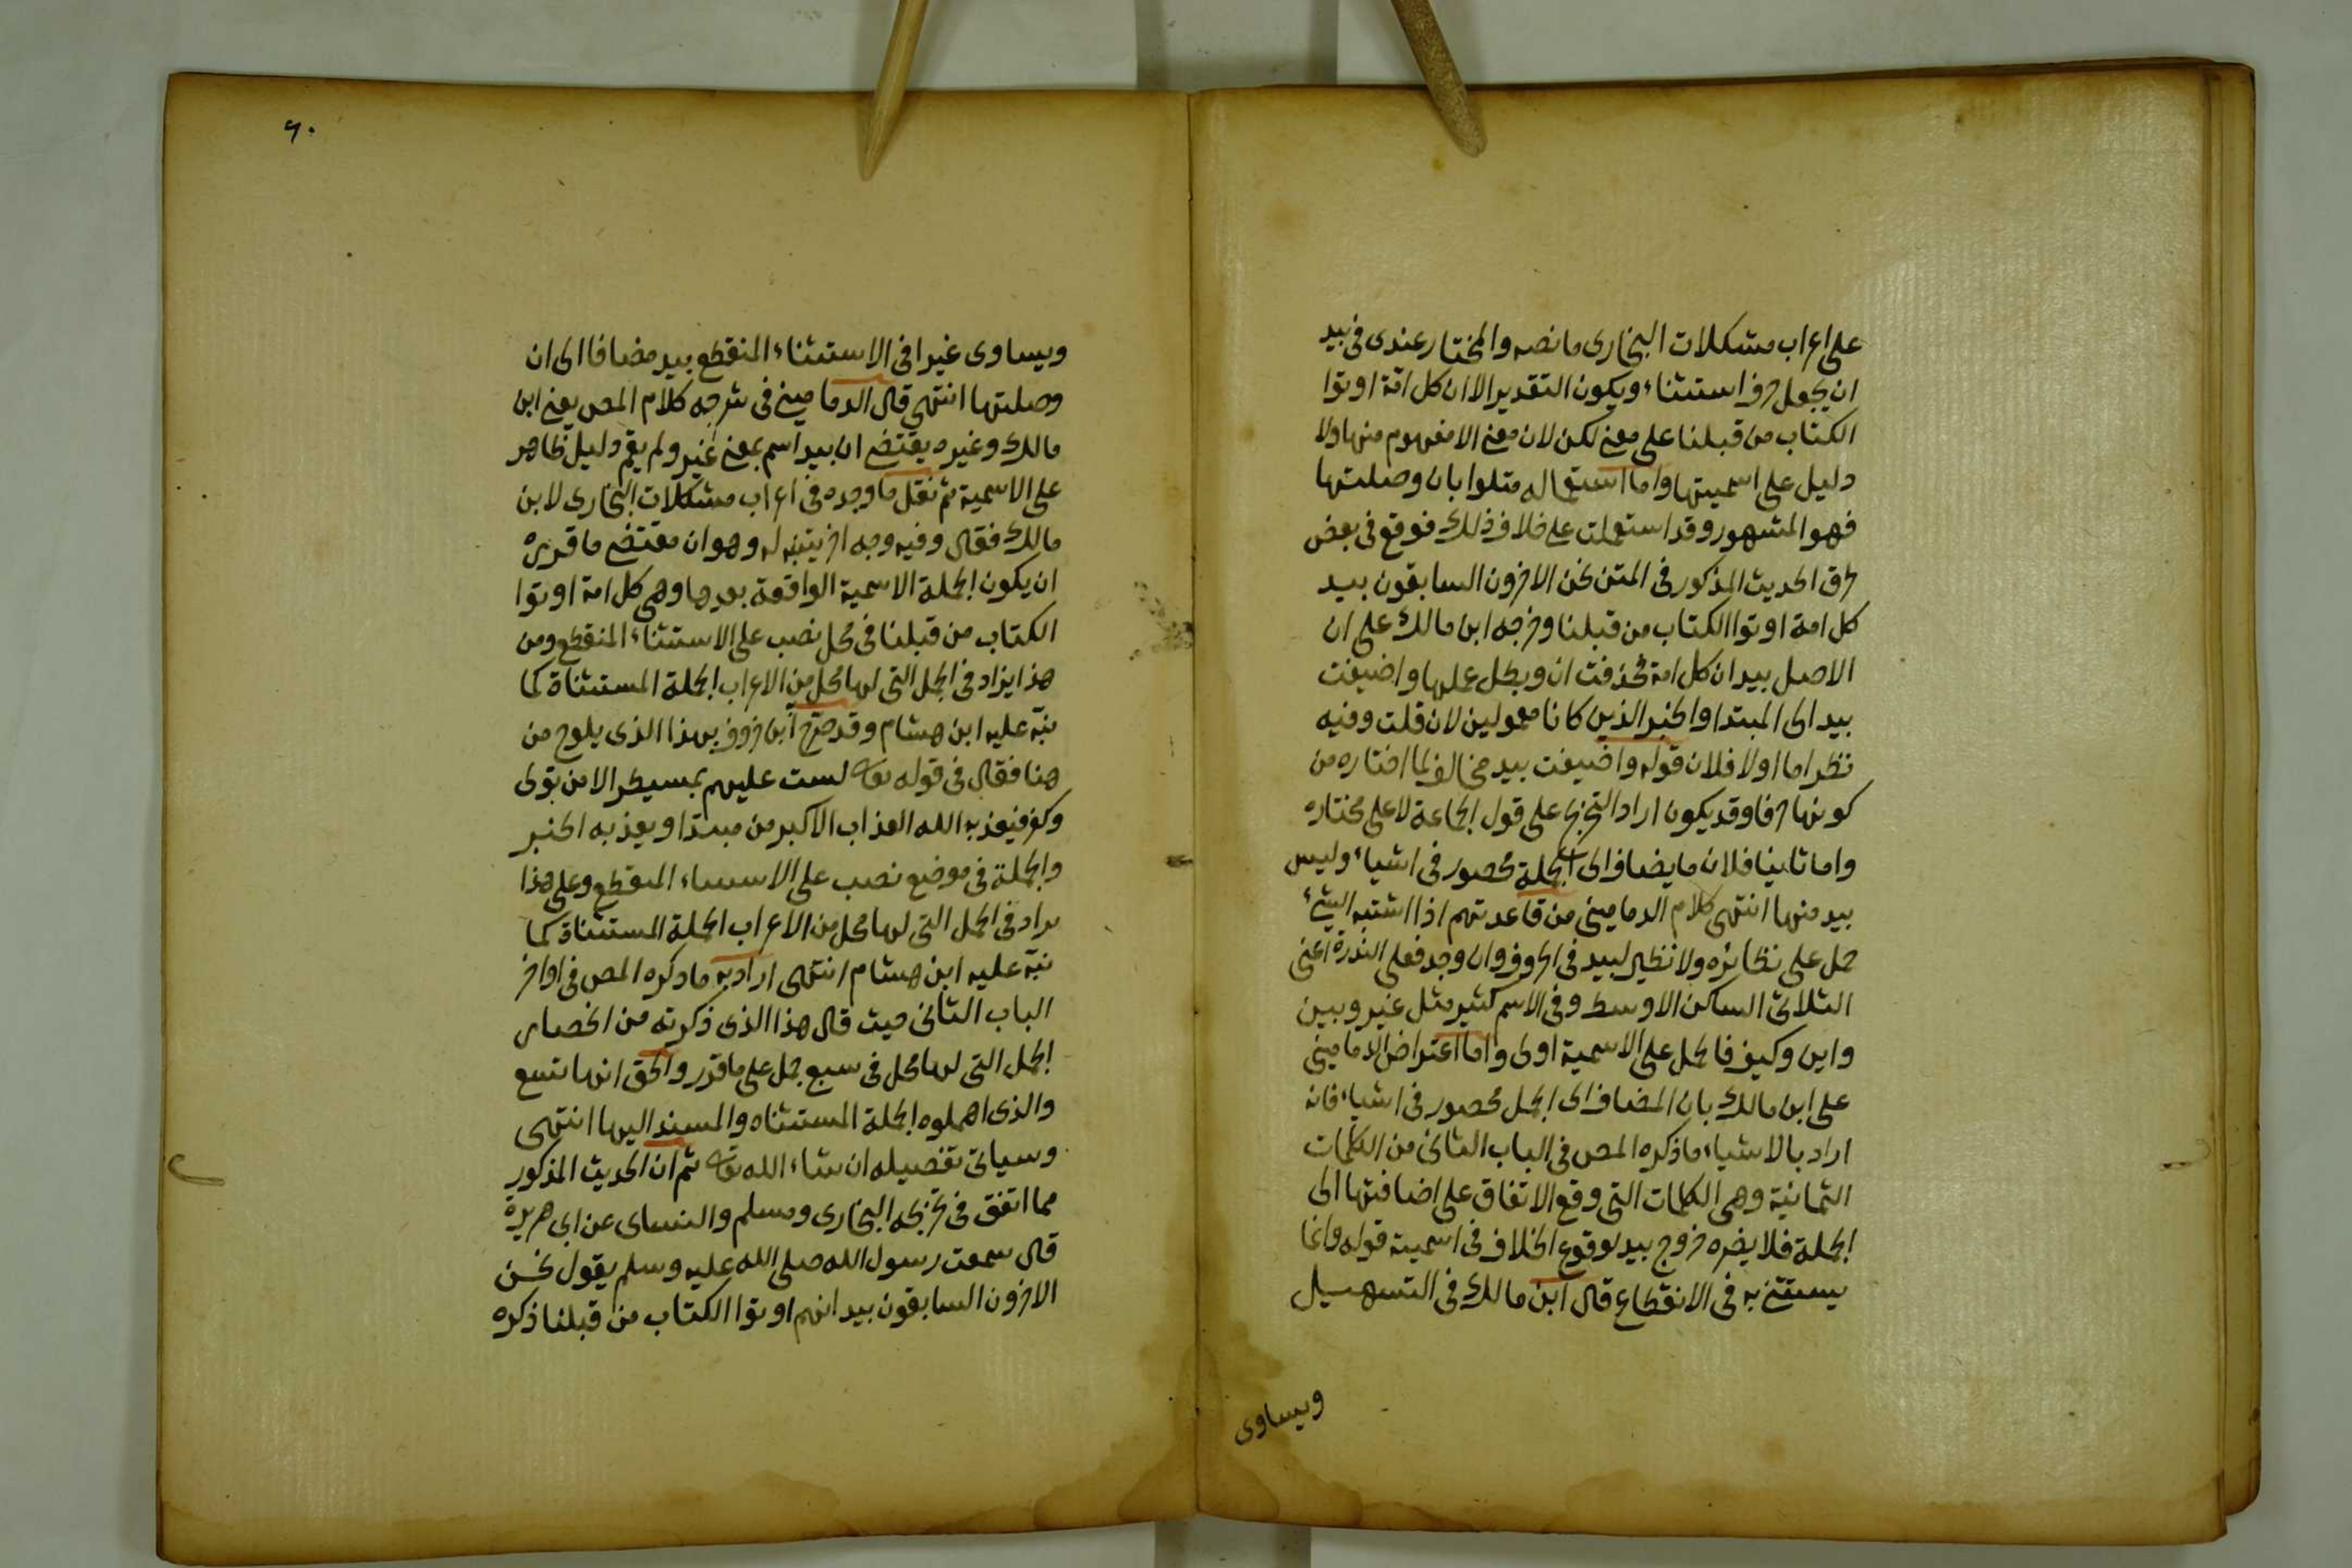 على اعراب مشكلات البخارى ما نصه والمختار عندى فى بيد
ان يجعل حرف استثناء ويكون التقدير الا ان كل امّة اوتوا
الكتاب من قبلنا على معنى لكن لان معنى الا مفهوم منها ولا
دليل على اسميتها واما استعماله متلوا بان وصلتها
فهو المشهور وقد استعملت على خلاف ذلك فوقع فى بعض
طرق الحديث المذكور فى المتن نحن الاخرون السابقون بيد
كل امة اوتوا الكتاب من قبلنا وخرجه ابن مالك على ان
الاصل بيد ان كل امة فحذفت ان وبطل عملها واضيفت
بيد الى المبتدا والخبر الذين كانا معمولين لان قلت وفيه
نظر اما اولا فلان قوله واضيفت بيد مخالف لما اختاره من
كونها حرفا وقد يكون اراد التخريج على قول الجماعة لا على مختاره
واما ثانيا فلان ما يضاف الى الجملة محصور فى اشياء وليس
بيد منها انتهى كلام الدمامينى من قاعدتهم اذا اشتبه الشئ
حمل على نظائره ولا نظير لبيد فى الحروف وان وجد فعلى الندرة اعنى
الثلاثى الساكن الاوسط وفى الاسم كثير مثل غير وبين
واين وكيف فالحمل على الاسمية اولى واما اعتراض الدمامينى
على ابن مالك بان المضاف الى الجمل محصور فى اشياء فانه
اراد بالاشياء ما ذكره المص فى الباب الثانى من الكلمات
الثمانية وهى الكلمات التى وقع الاتفاق على اضافتها الى
الجملة فلا يضره خروج بيد لوقوع الخلاف فى اسميته قوله وانما
يستثنى به فى الانقطاع قال ابن مالك فى التسهيل
ويساوى
٦٠
ويساوى غيرا فى الاستثناء المنقطع بيد مضافا الى ان
وصلتها انتهى قال الدمامينى فى شرحه كلام المص يعنى ابن
مالك وغيره يقتضى ان بيد اسم بمعنى غير ولم يقم دليل ظاهر
على الاسمية ثم نقل ما وجده فى اعراب مشكلات البخارى لابن
مالك فقال وفيه وجه اخر يتنبه له وهو ان مقتضى ما قرره
ان يكون الجملة الاسمية الواقعة بعدها وهى كل امة اوتوا
الكتاب من قبلنا فى محل نصب على الاستثناء المنقطع ومن
هذا يزاد فى الجمل التى لها محل من الاعراب الجملة المستثناة كما
نبّه عليه ابن هشام وقد صرّح ابن خروف بهذا الذى يلوح من
هنا فقال فى قوله تعا لست عليهم بمسيطر الا من تولى
وكفر فيعذبه الله العذاب الاكبر من مبتدا ويعذبه الخبر
والجملة فى موضع نصب على الاستثناء المنقطع وعلى هذا
يراد فى الجمل التى لها محل من الاعراب الجملة المستثناة كما
نبّه عليه ابن هشام انتهى اراد به ما ذكره المص فى اواخر
الباب الثانى حيث قال هذا الذى ذكرته من انحصار
الجمل التى لها محل فى سبع جمل على ما قرر والحق انها تسع
والذى اهملوه الجملة المستثناه والمسند اليها انتهى
وسياتى تفصيله ان شاء الله تعا ثم ان الحديث المذكور
مما اتفق فى تخريجه البخارى ومسلم والنساى عن ابى هريرة
قال سمعت رسول الله صلى الله عليه وسلم يقول نحن
الاخرون السابقون بيد انهم اوتوا الكتاب من قبلنا ذكره